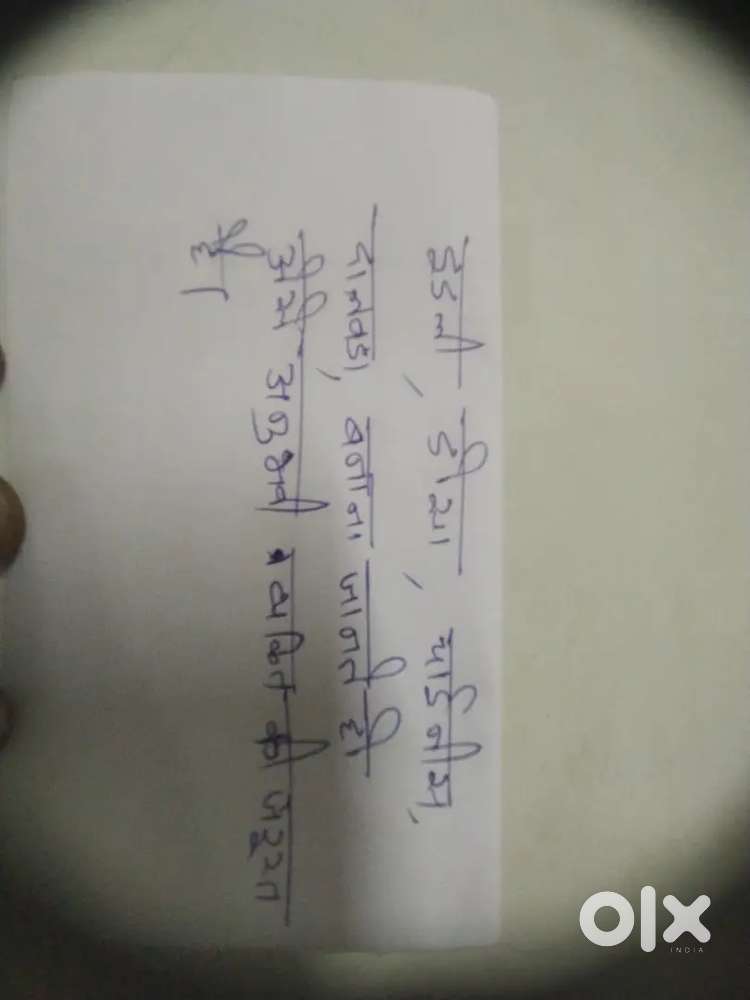 इडली, डोसा, चाईनीस,
दालवडा, बनाना जानते हो
ऐसे अनुभवी व्यक्ति की जरूरत
है।
olx
INDIA